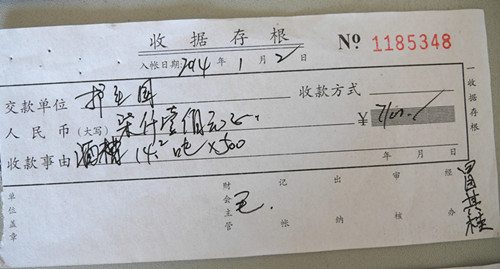 收据存根
No 1185348
入帐日期 2014 年 1 月 2 日
交款单位 收款方式
人民币(大写) 柒仟壹佰元正 ¥ 7100.
收款事由 酒糟 14.2吨 X500
年 月 日
单位盖章 财会主管 毛 记帐 出纳 审核 经办 冒其桂
收据存根